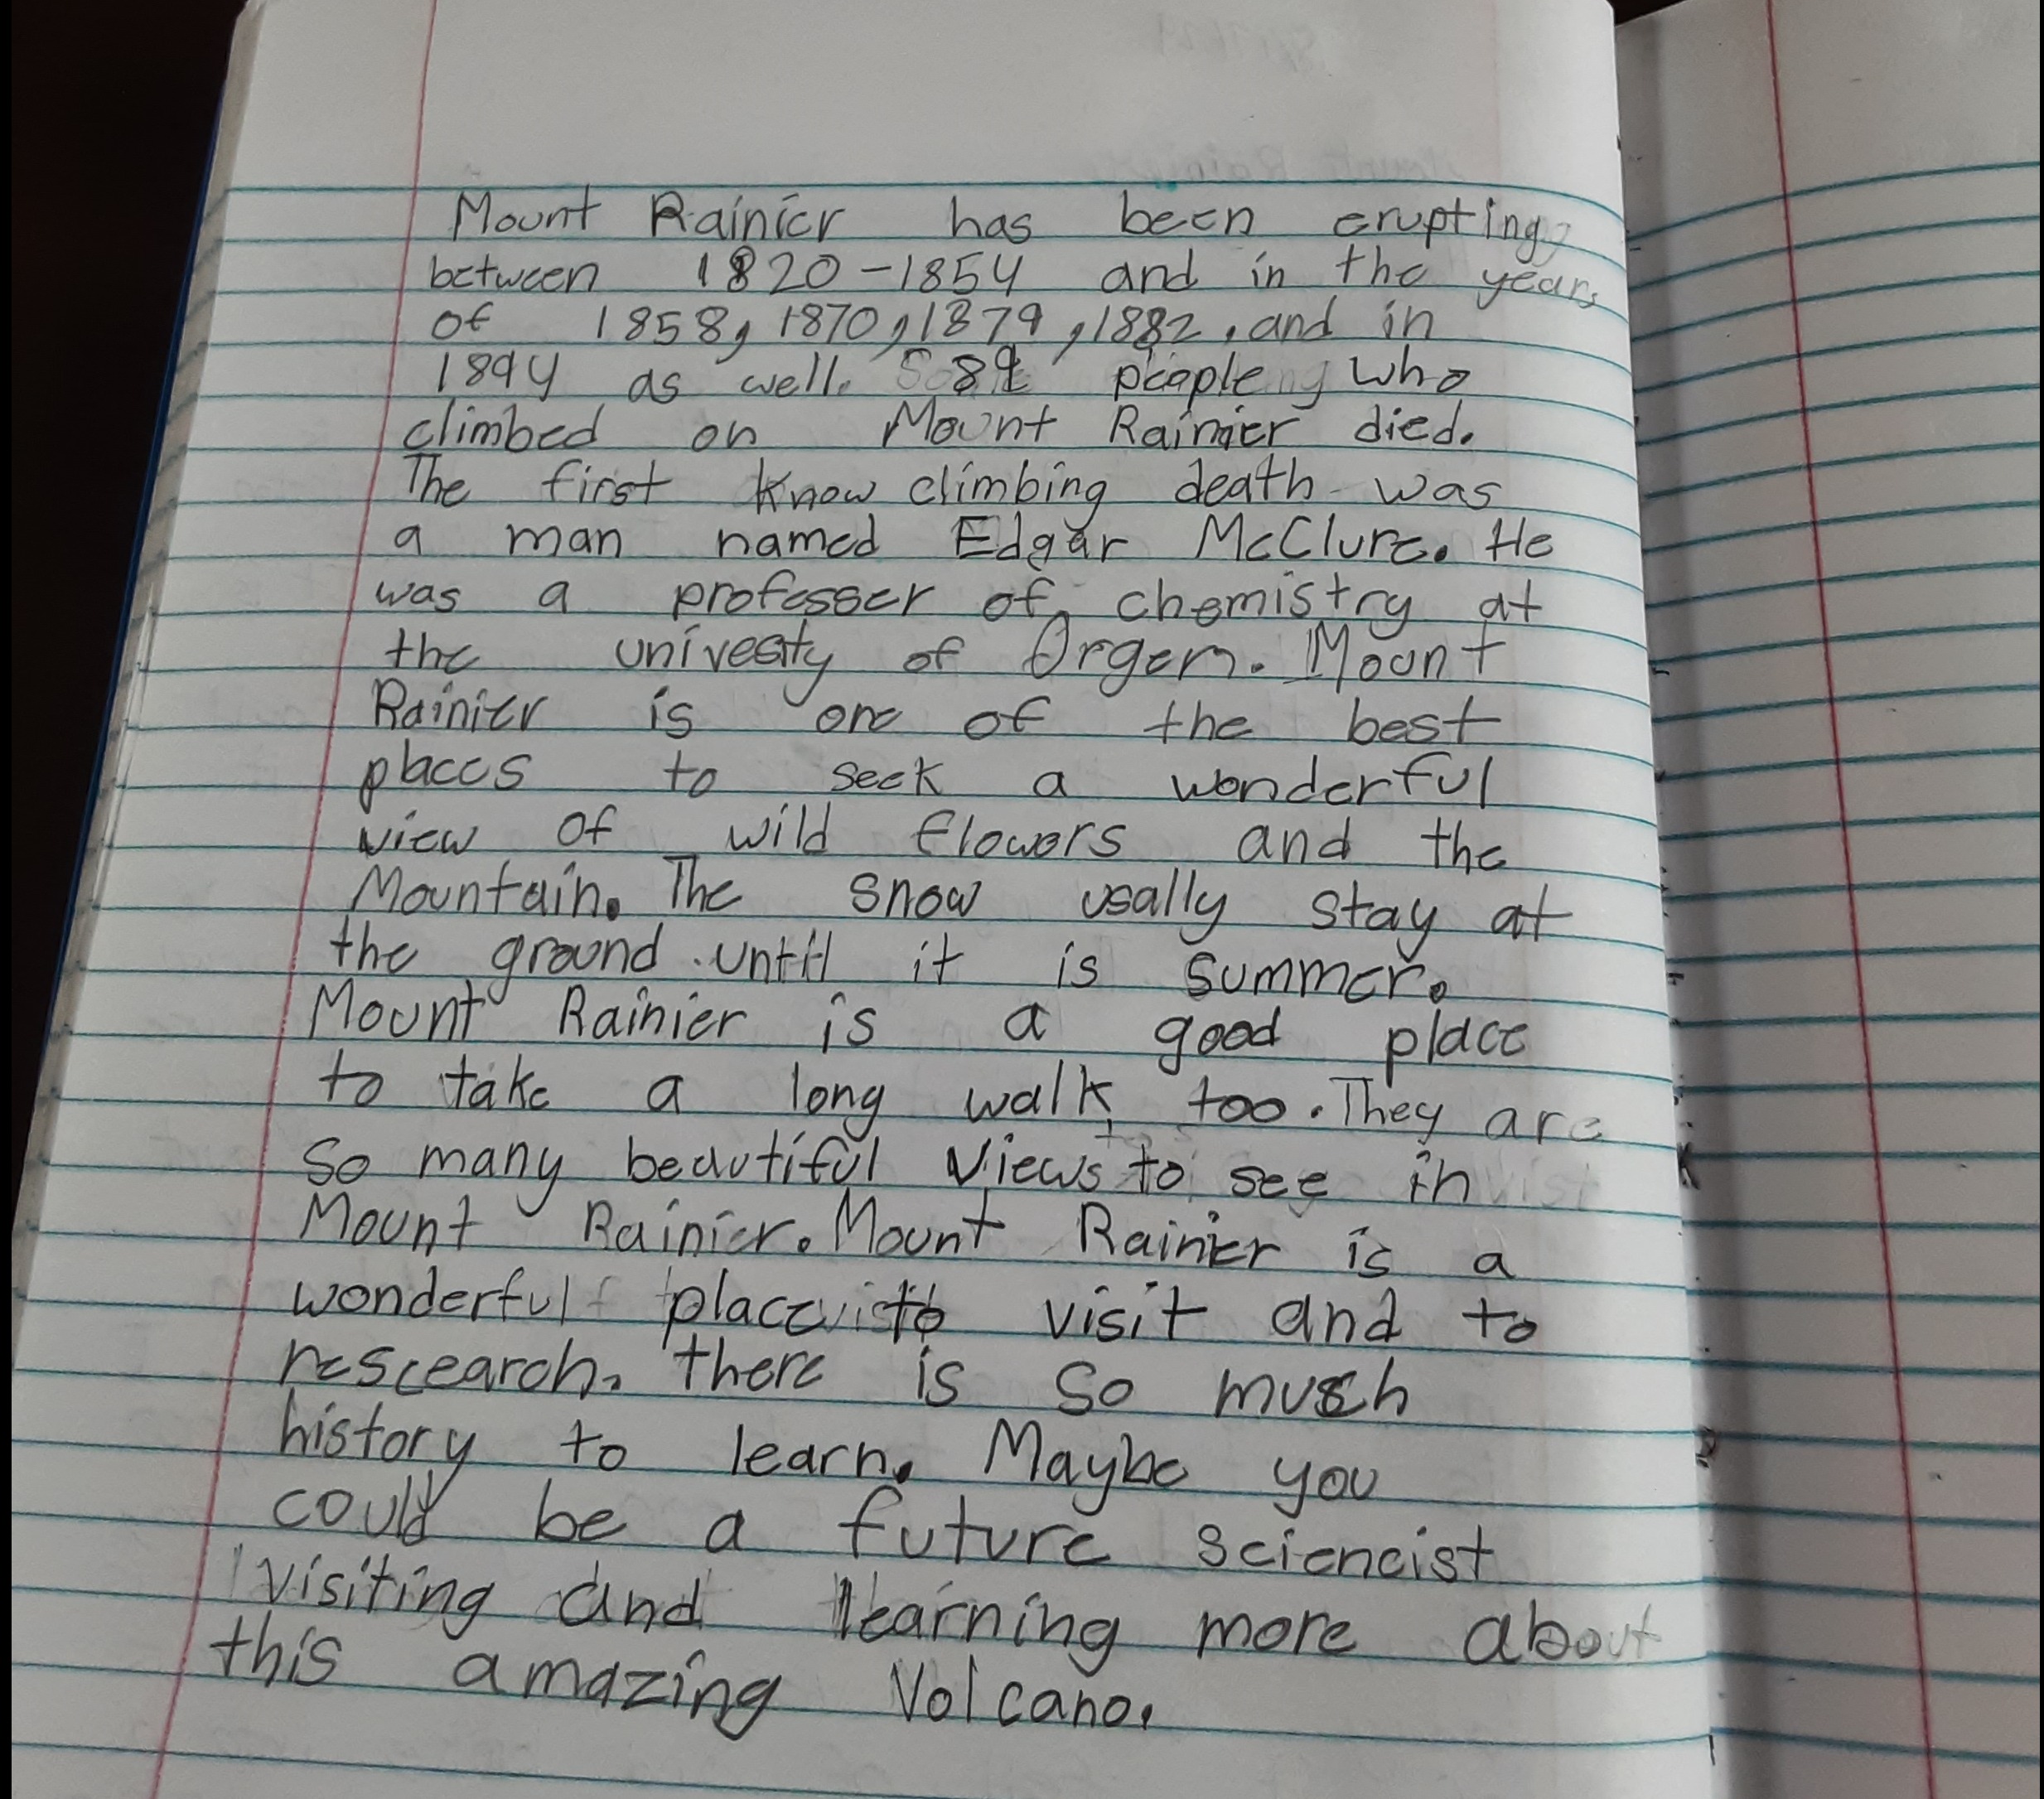 Mount Rainier has been erupting
between 1820-1854 and in the years
of 1858, 1870, 1879, 1882, and in
1894 as well. 89 people who
climbed on Mount Rainier died.
The first know climbing death was
a man named Edgar McClure. He
was a professer of chemistry at
the univesity of Orgen. Mount
Rainier is one of the best
places to seek a wonderful
view of wild flowers and the
Mountain. The snow usally stay at
the ground until it is summer.
Mount Rainier is a good place
to take a long walk too. They are
so many beautiful views to see in
Mount Rainier. Mount Rainier is a
wonderful place to visit and to
rescearch. there is so much
history to learn. Maybe you
could be a future sciencist
visiting and learning more about
this amazing Volcano.